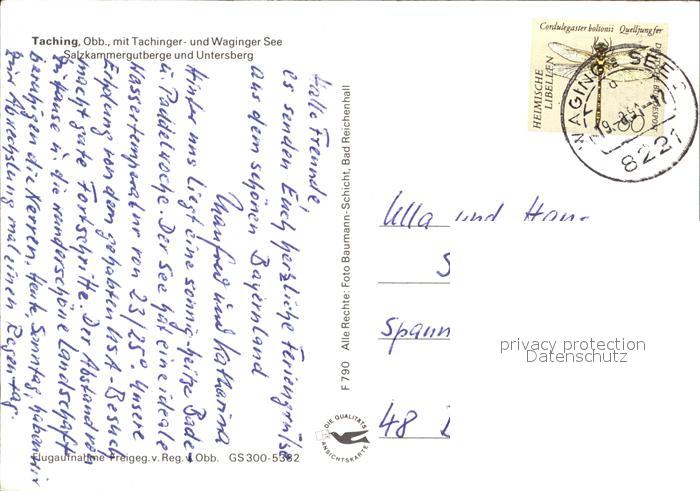 Taching, Obb., mit Tachinger- und Waginger See
Salzkammergutberge und Untersberg
Hallo Freunde,
es senden Euch herzliche Feriengrüße
aus dem schönen Bayernland
Manfred und Katharina
Hinter uns liegt eine sonnig-heiße Bade-
u. Paddelwoche. Der See hat eine ideale
Wassertemperatur von 23/25°. Unsere
Erholung von dem gehabten USA-Besuch
macht gute Fortschritte. Der Abstand von
zu Hause u. die wunderschöne Landschaft
beruhigen die Nerven. Heute, Sonntag, haben wir
zur Abwechslung mal einen Regentag.
Flugaufnahme Freigeg. v. Reg. v. Obb. GS 300-5382
F 790 Alle Rechte: Foto Baumann-Schicht, Bad Reichenhall
DIE QUALITÄTS
ANSICHTSKARTE
Cordulegaster boltonii Quelljungfer
HEIMISCHE
LIBELLEN
DEUTSCHE BUNDESPOST
60
WAGING A SEE
8221
Ulla und Hans
S
Spann
48
privacy protection
Datenschutz